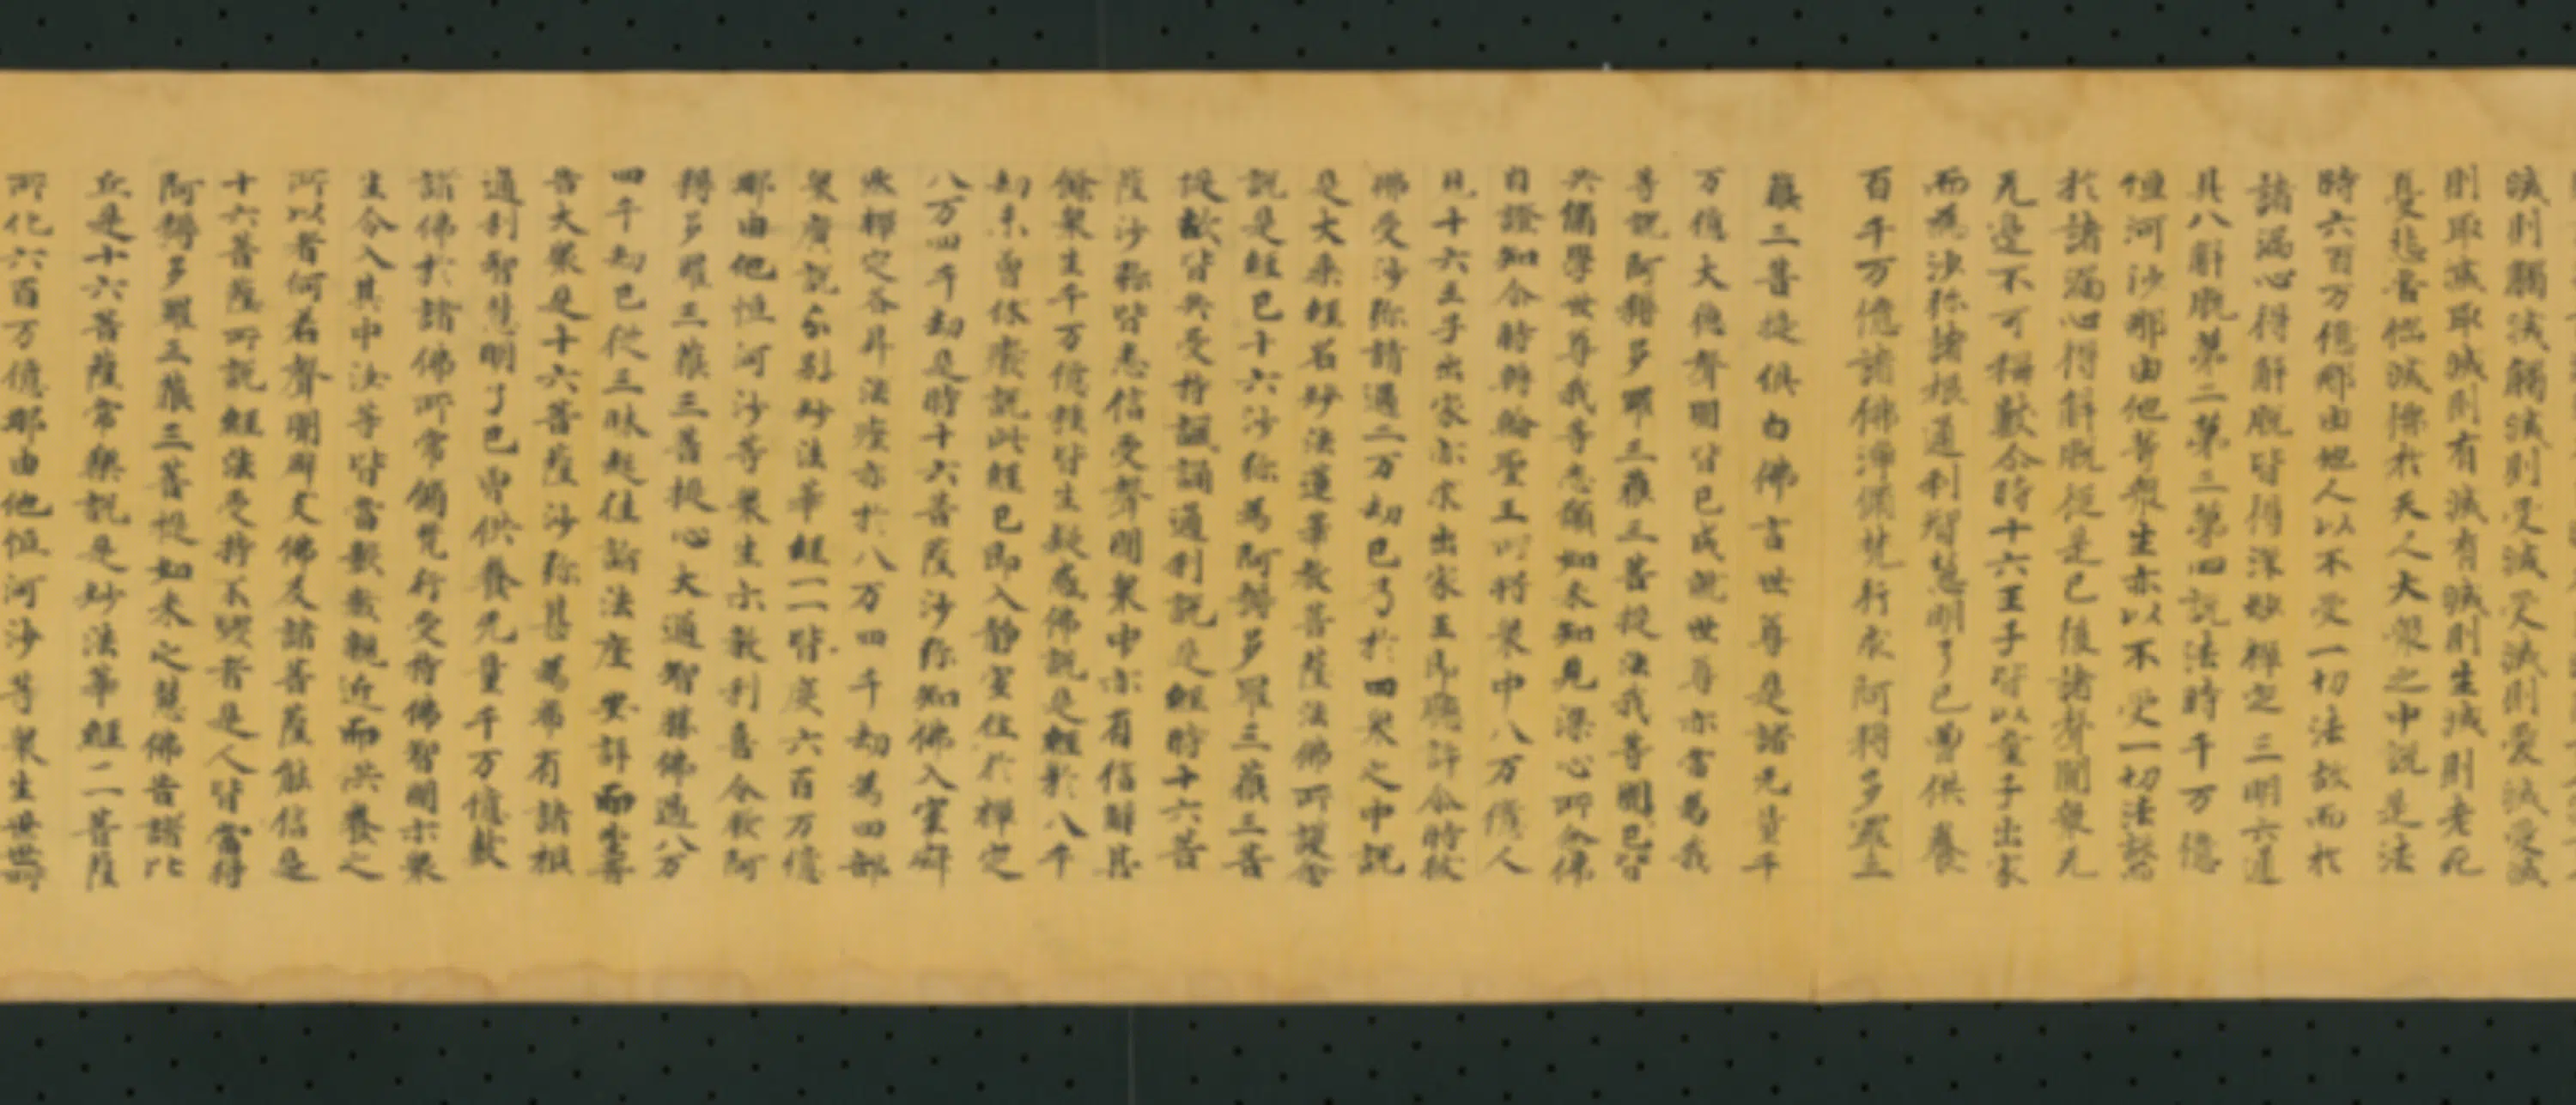 滅則觸滅觸滅則受滅受滅則愛滅愛滅
則取滅取滅則有滅有滅則生滅生滅則老死
憂悲苦惱滅佛於天人大衆之中說是法
時六百万億那由他人以不受一切法故而於
諸漏心得解脫皆得深妙禪定三明六通
具八解脫第二第三第四說法時千万億
恒河沙那由他等衆生亦以不受一切法故而
於諸漏心得解脫從是已後諸聲聞衆无
无邊不可稱數尒時十六王子皆以童子出家
而為沙弥諸根通利智慧明了已曾供養
百千万億諸佛淨脩梵行求阿耨多羅三
藐三菩提俱白佛言世尊是諸无量千
万億大德聲聞皆已成就世尊亦當為我
等說阿耨多羅三藐三菩提法我等聞已皆
共脩學世尊我等志願如來知見深心所念佛
自證知尒時轉輪聖王所將衆中八万億人
見十六王子出家亦求出家王即聽許尒時彼
佛受沙弥請過二万劫已乃於四衆之中說
是大乘經名妙法蓮華教菩薩法佛所護念
說是經已十六沙弥為阿耨多羅三藐三菩
提故皆共受持諷誦通利說是經時十六菩
薩沙弥皆悉信受聲聞衆中亦有信解其
餘衆生千万億種皆生疑惑佛說是經於八千
劫未曾休癈說此經已即入靜室住於禪定
八万四千劫是時十六菩薩沙弥知佛入室寂
然禪定各昇法座亦於八万四千劫為四部
衆廣說分別妙法華經一一皆度六百万億
那由他恒河沙等衆生示教利喜令發阿
耨多羅三藐三菩提心大通智勝佛過八万
四千劫已從三昧起往詣法座安詳而坐普
告大衆是十六菩薩沙弥甚為希有諸根
通利智慧明了已曾供養无量千万億數
諸佛於諸佛所常脩梵行受持佛智開示衆
生令入其中汝等皆當數數親近而供養之
所以者何若聲聞辟支佛及諸菩薩能信是
十六菩薩所說經法受持不毀者是人皆當得
阿耨多羅三藐三菩提如來之慧佛告諸比
丘是十六菩薩常樂說是妙法華經一一菩薩
所化六百万億那由他恒河沙等衆生世世所